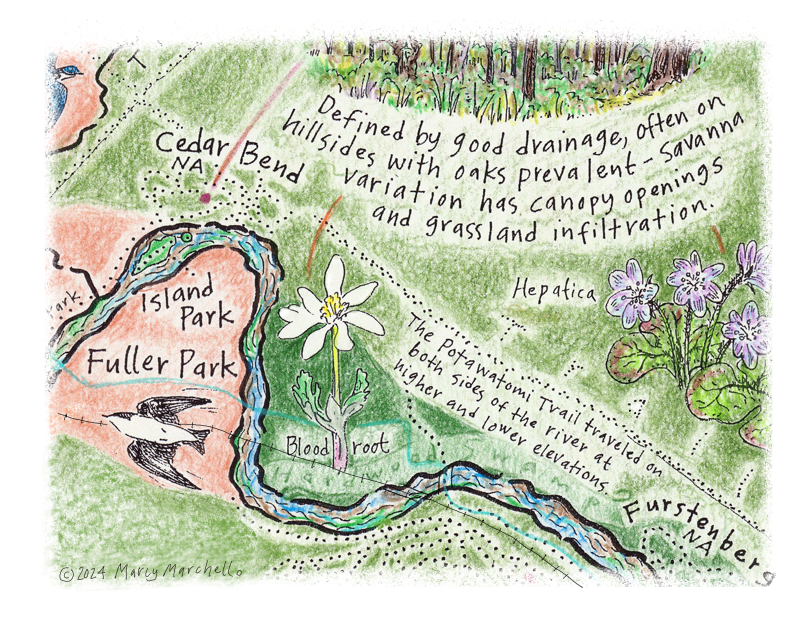 Defined by good drainage, often on
hillsides with oaks prevalent - Savanna
variation has canopy openings
and grassland infiltration.
Cedar Bend
NA
Island
Park
Park
Fuller Park
Hepatica
The Potawatomi Trail traveled on
both sides of the river at
higher and lower elevations.
Blood root
Furstenberg
NA
©2024 Marcy Marchello